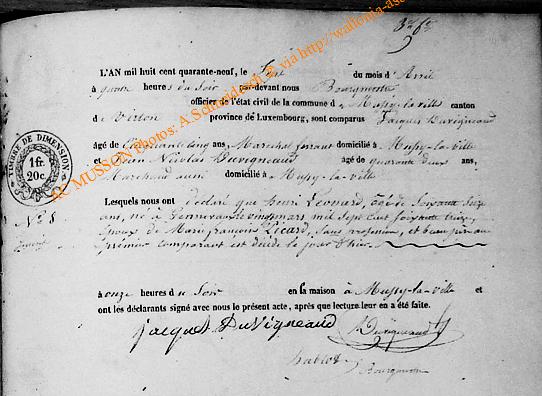 3e fe
L'AN mil huit cent quarante-neuf, le Sept du mois d'Avril
à quatre heures du Soir par-devant nous Bourgmestre
officier de l'état civil de la commune de Mussy-la-ville canton
de Virton province de Luxembourg, sont comparus Jacques Duvigneaud
âgé de Cinquante cinq ans, Marechal ferrant domicilié à Mussy-la-ville
et Jean Nicolas Duvigneaud âgé de quarante deux ans,
Marchand aussi domicilié à Mussy-la-ville
TIMBRE DE DIMENSION
1 fr.
20c.
Lesquels nous ont déclaré que henri Léonard, âgé de Soixante Seize
No 8
ans, né à Gennevaux le vingt mars mil sept cent soixante treize,
Epoux de Marie françoise Picard, Sans profession, et beau père au
premier comparant est décédé le jour d'hier
à onze heures du Soir en sa maison à Mussy-la-ville et
ont les déclarants signé avec nous le présent acte, après que lecture leur en a été faite.
jacques DuVigneaud Duvigneaud
Bourgmestre
AC MUSSON Photos: A.Schmideisch @ via http://wallonia-as